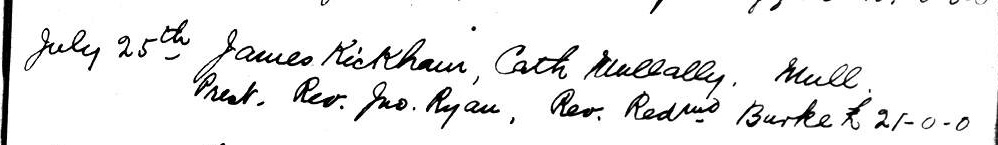 July 25th James Kickham, Cath Mullally. Mull.
Prest. Rev. Jno. Ryan, Rev. Redmd Burke £ 21-0-0